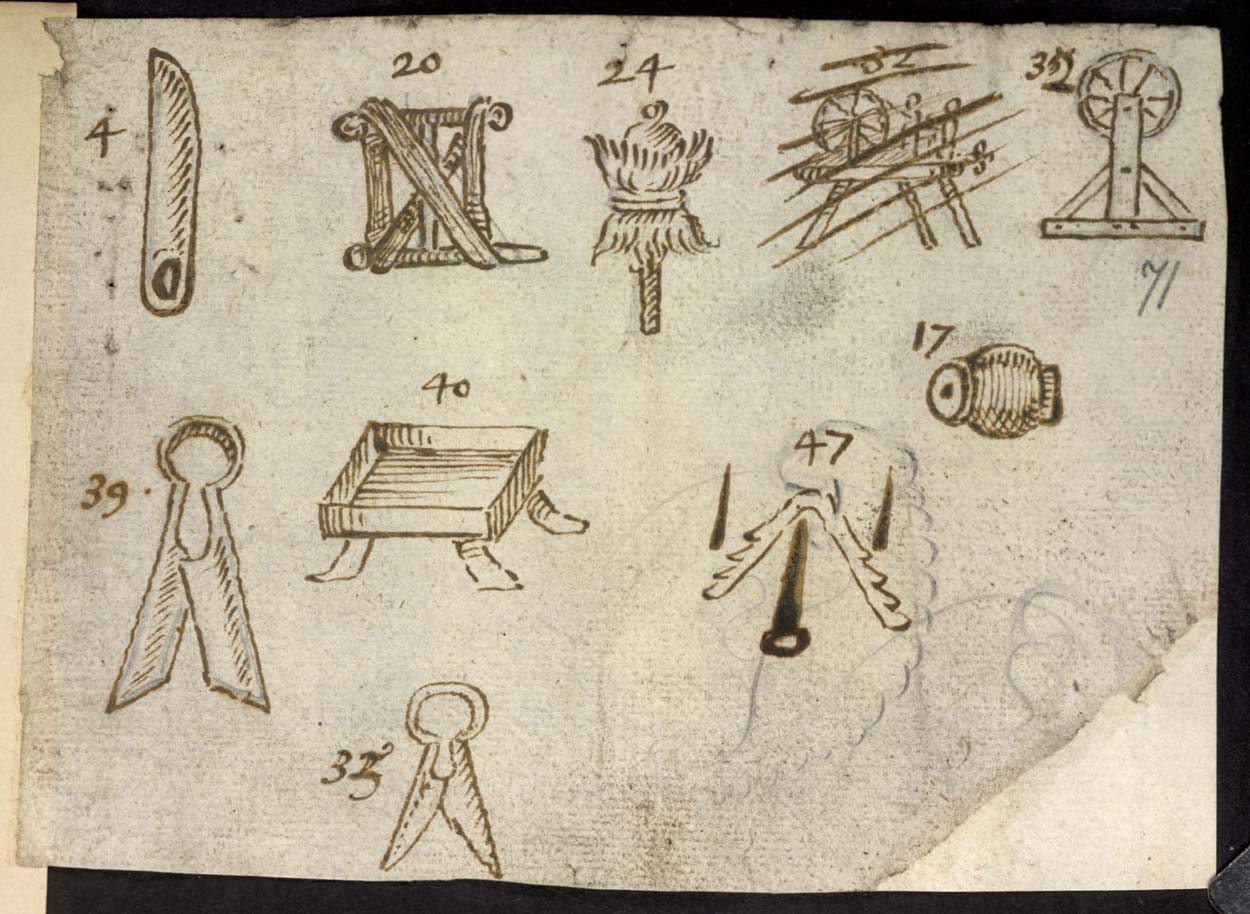 4
20
24
32
32
71
17
40
39.
47
33